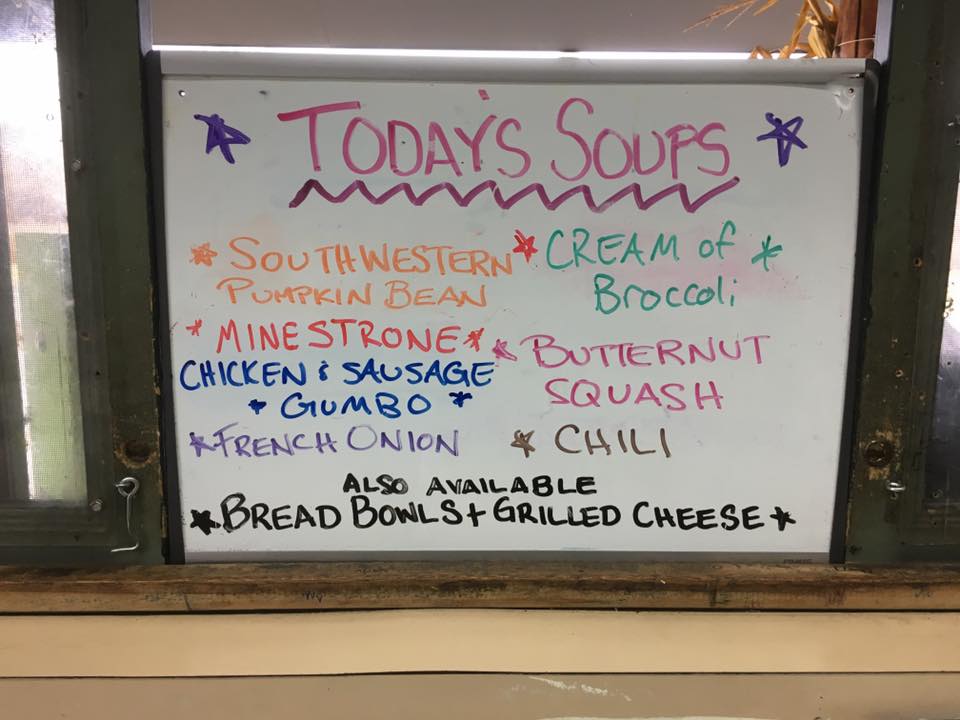 TODAY'S SOUPS
SOUTHWESTERN
PUMPKIN BEAN
MINESTRONE
CHICKEN & SAUSAGE
GUMBO
FRENCH ONION
CREAM of
BROCCOLi
BUTTERNUT
SQUASH
CHILI
ALSO AVAILABLE
BREAD BOWLS + GRILLED CHEESE